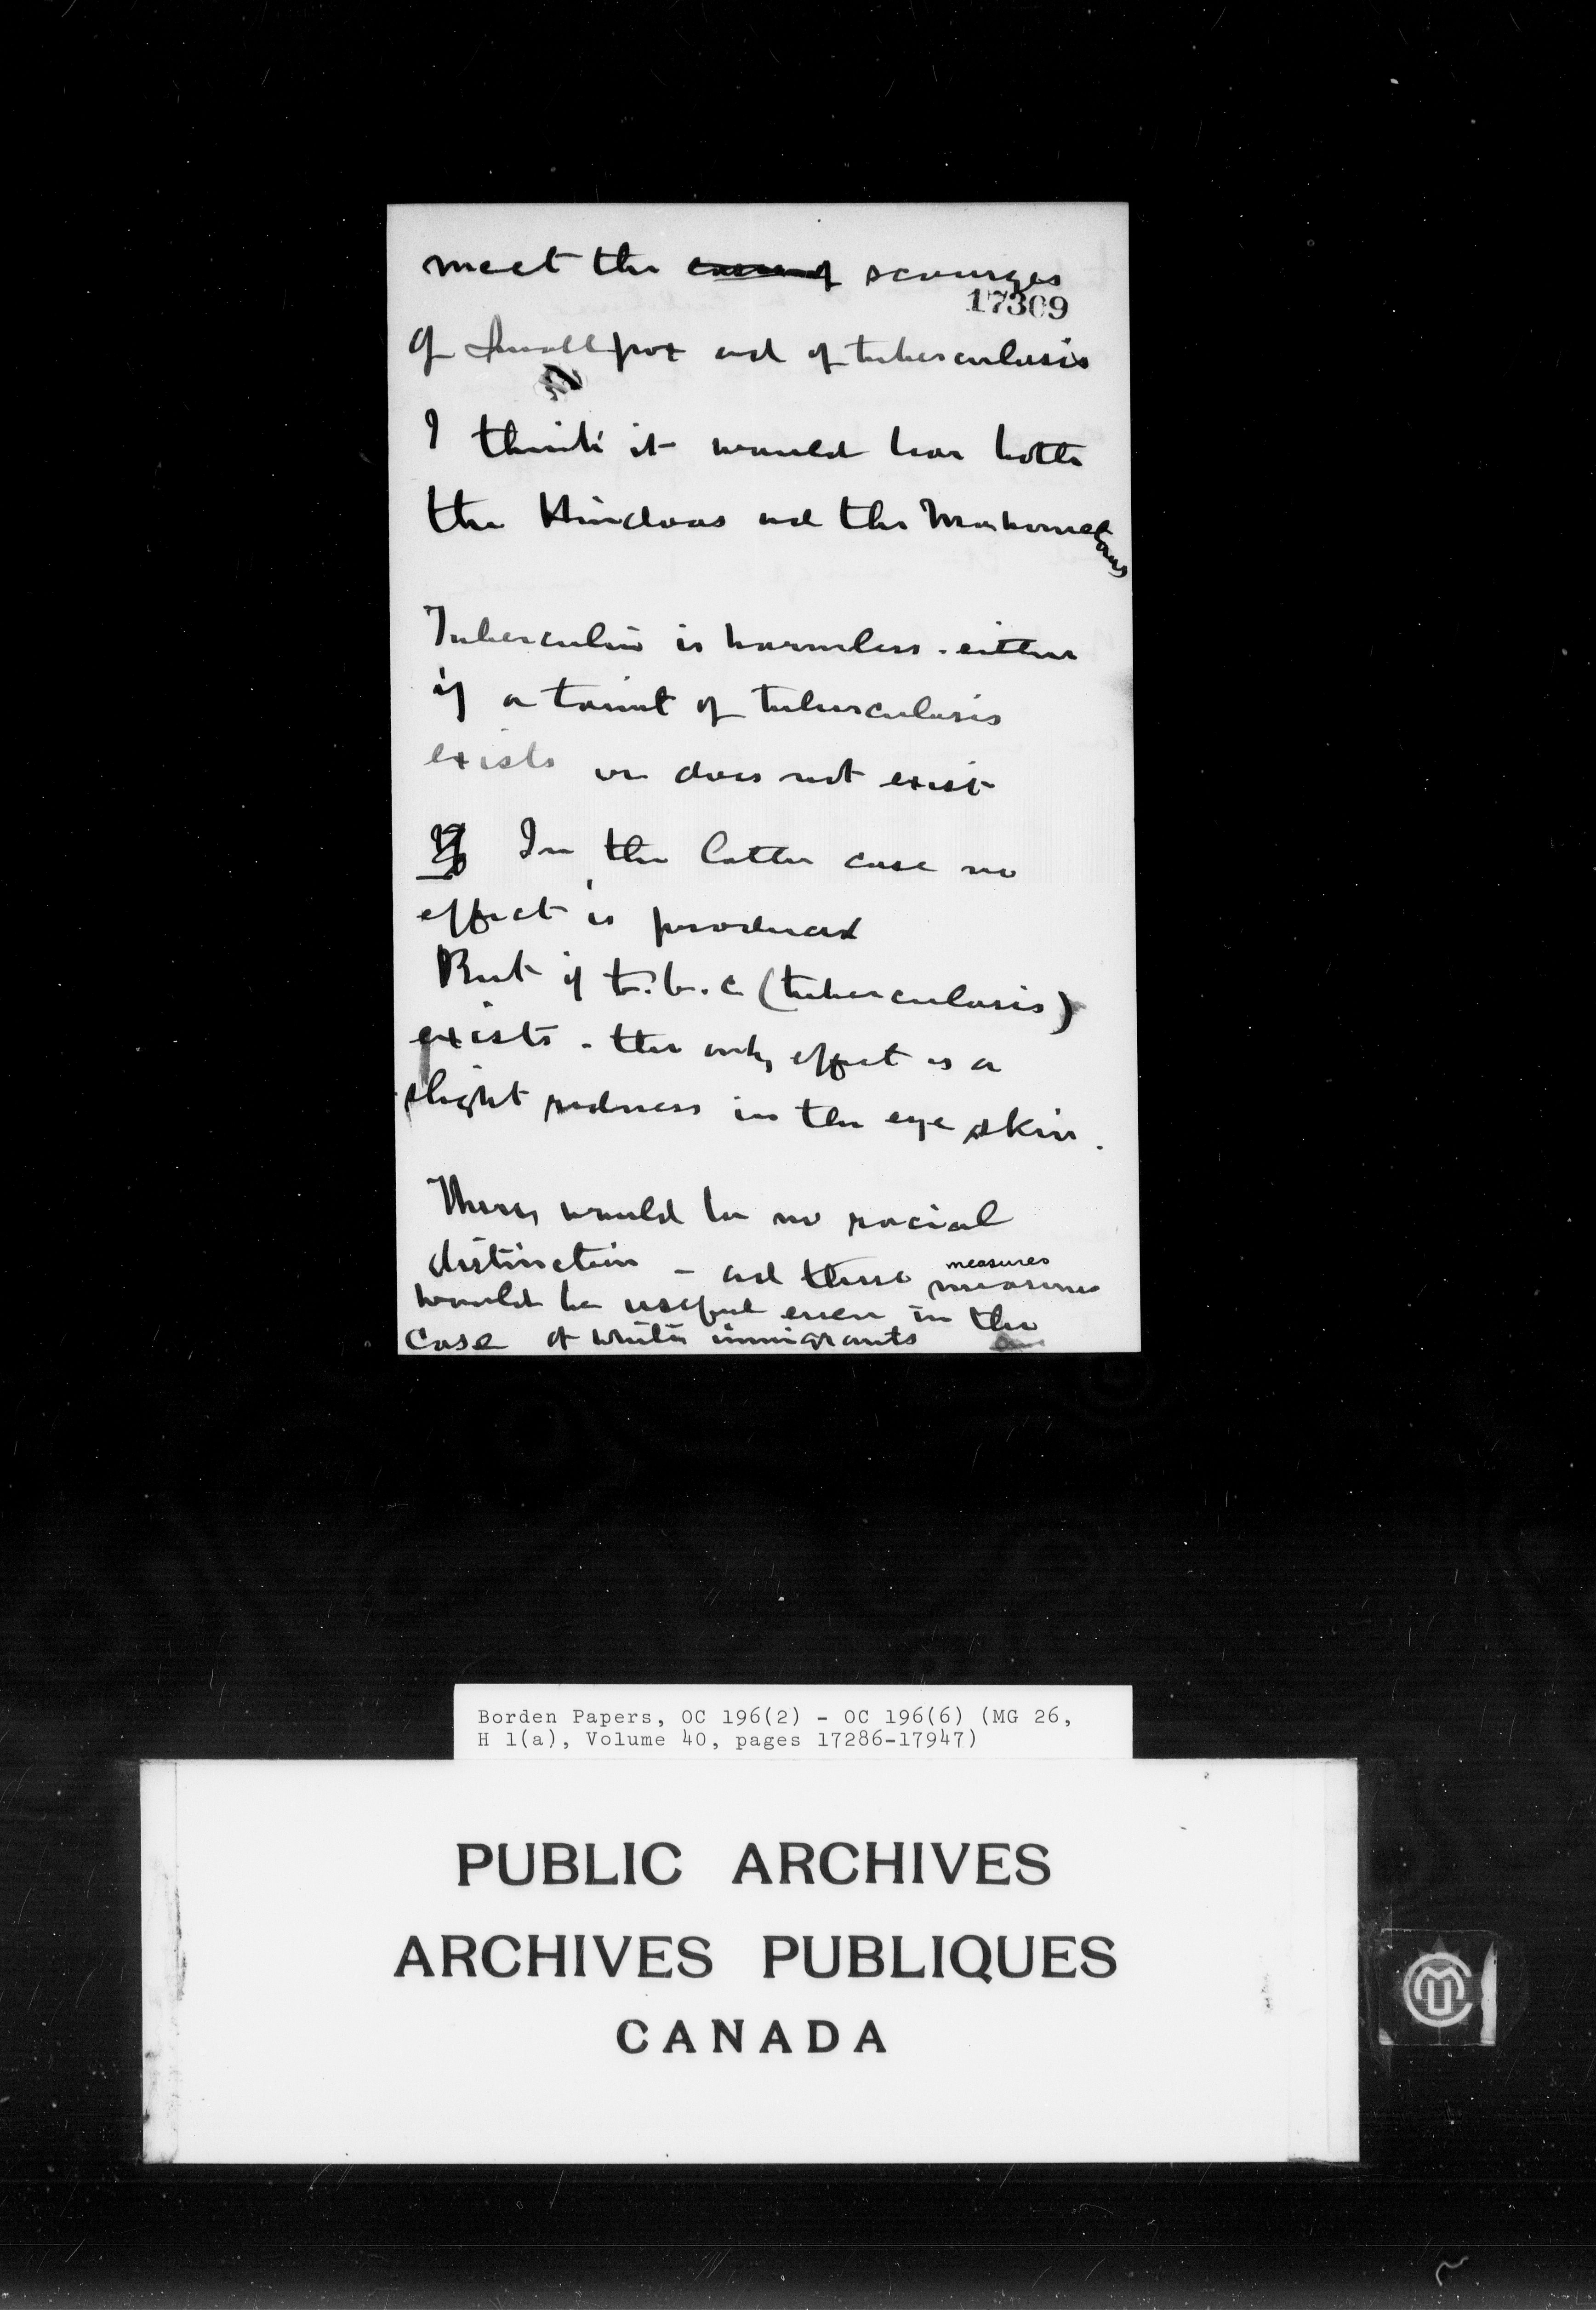 meet the scourges
17309
of Small pox and of tuberculosis
I think it would bar both
the Hindoos and the Mahometans
Tuberculin is harmless - either
if a taint of tuberculosis
exists or does not exist
In the latter case no
effect is produced
But if t.b.c (tuberculosis)
exists - the only effect is a
slight redness in the eye skin.
There would be no racial
distinction - and these measures
measures
would be useful even in the
case of white immigrants
Borden Papers, OC 196(2) - OC 196(6) (MG 26,
H 1(a), Volume 40, pages 17286-17947)
PUBLIC ARCHIVES
ARCHIVES PUBLIQUES
CANADA